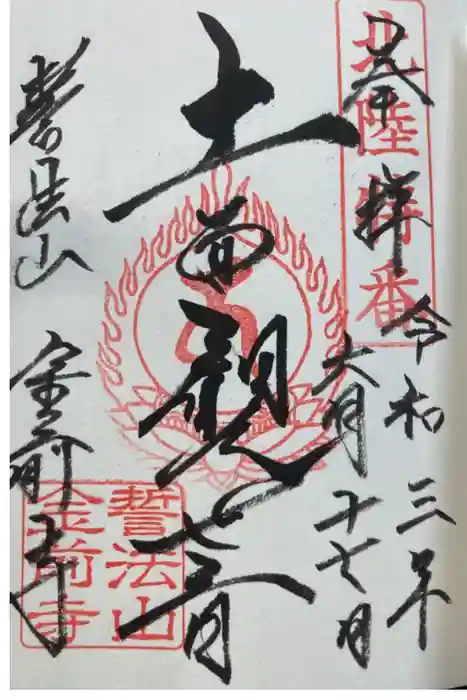 奉拝
北陸特番
令和三年
六月二十七日
十一面観世音
誓法山
金前寺
誓法山
金前寺